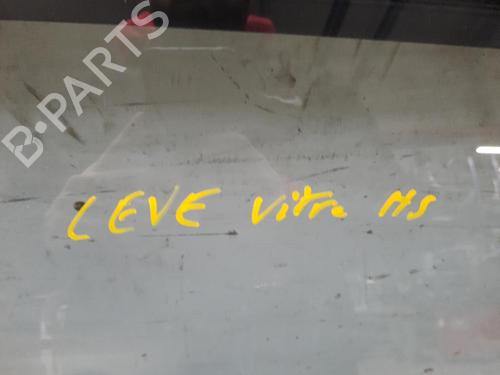 B-PARTS
LEVE Vitre HS